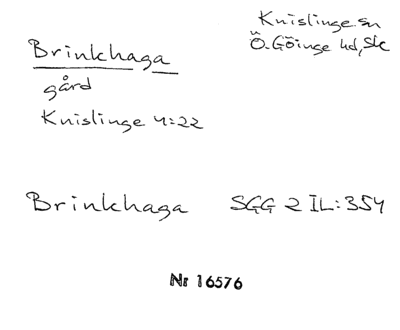 Brinkhaga
gård
Knislinge 4:22
Knislinge sn
Ö. Göinge hd, Sk
Brinkhaga SGG 2 IL:354
Nr 16576